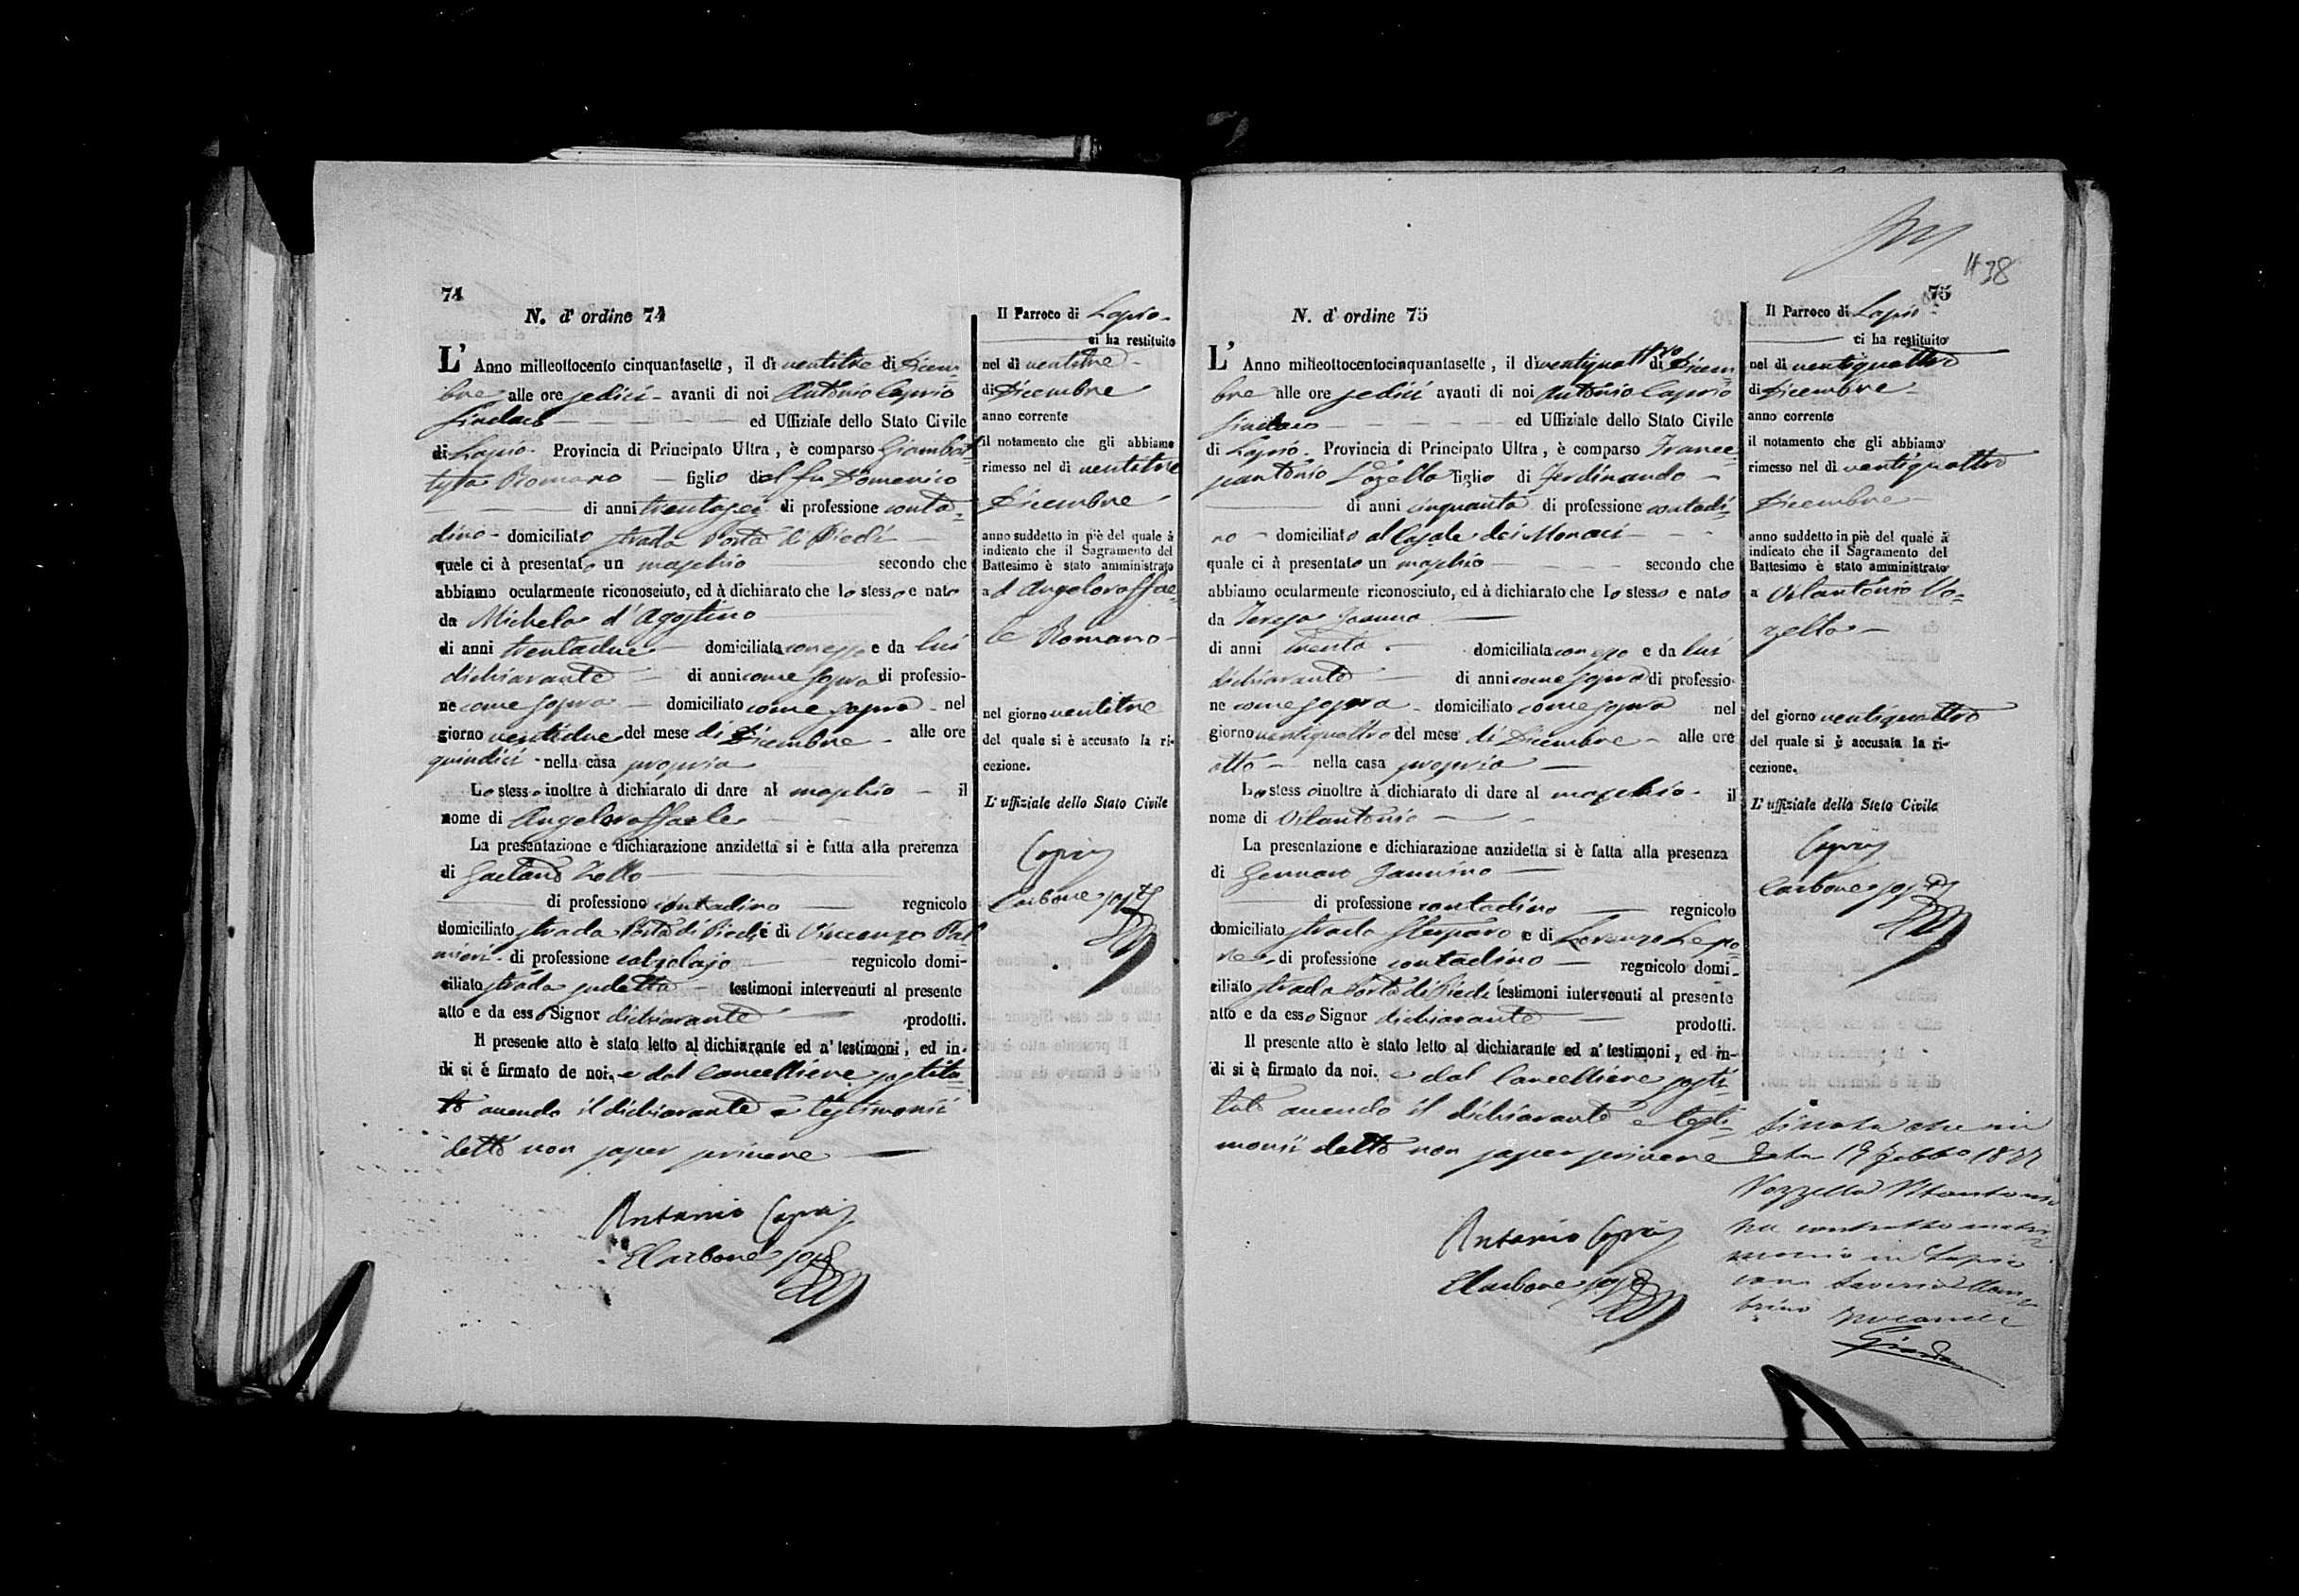 74
N. d' ordine 74
L' Anno milleottocento cinquantasette, il dì ventitre di Dicem=
bre alle ore sedici - avanti di noi Antonio Caprio
Sindaco ed Uffiziale dello Stato Civile
di Lapio. Provincia di Principato Ultra, è comparso Giambat=
tista Romano figlio del fu Domenico
di anni trentasei di professione conta=
dino - domiciliato strada Porta di Piedi
quele ci à presentato un maschio secondo che
abbiamo ocularmente riconosciuto, ed à dichiarato che lo stesso e nato
da Michela d'Agostino
di anni trentadue domiciliata con esso e da lui
dichiarante di anni come sopra di professio-
ne come sopra domiciliato come sopra nel
giorno ventidue del mese di Dicembre alle ore
quindici - nella casa propria
Lo stesso inoltre à dichiarato di dare al maschio il
nome di Angeloraffaele
La presentazione e dichiarazione anzidetta si è fatta alla prerenza
di Gaetano Zollo
di professiono contadino regnicolo
domiciliato strada Porta di Piedi e di Vincenzo Pal
mieri. di professione calzolajo regnicolo domi-
ciliato strada sudetta testimoni intervenuti al presente
atto e da esso Signor dichiarante prodotti.
Il presente atto è stato letto al dichiarante ed a' testimoni, ed in-
di si è firmato de noi. e dal Cancelliere sostitu=
to avendo il dichiarante e testimonii
detto non saper scrivere
Antonio Caprio
E Carbone sost
Il Parroco di Lapio
ci ha restituito
nel dì ventitre
di Dicembre
anno corrente
il notamento che gli abbiamo
rimesso nel di ventitre
Dicembre
anno suddetto in piè del quale à
indicato che il Sagramento del
Battesimo è stato amministrato
ad Angeloraffae=
le Romano
nel giorno ventitre
del quale si è accusato la ri-
cezione.
L' uffiziale dello Stato Civile
Caprio
Carbone sost
38
75
N. d' ordine 75
L' Anno milleottocentocinquantasette, il dì ventiquattro di Dicem=
bre alle ore sedici avanti di noi Antonio Caprio
Sindaco ed Uffiziale dello Stato Civile
di Lapio. Provincia di Principato Ultra, è comparso France=
scantonio Vozella figlio di Ferdinando
di anni cinquanta di professione contadi=
no - domiciliato al Casale dei Monaci
quale ci à presentato un maschio secondo che
abbiamo ocularmente riconosciuto, ed à dichiarato che lo stesso e nato
da Teresa
di anni trenta. domiciliata con esso e da lui
dichiarante di anni come sopra di professio-
ne come sopra domiciliato come sopra nel
giorno ventiquattro del mese di Dicembre alle ore
otto nella casa propria
Lo stess oinoltre à dichiarato di dare al maschio il
nome di Vitantonio
La presentazione e dichiarazione anzidetta si è fatta alla presenza
di Gennaro Jannino
di professione contadino regnicolo
domiciliato strada e di Lorenzo Lepo=
re, di professione contadino regnicolo domi-
ciliato strada Porta di Piedi testimoni intervenuti al presente
atto e da esso Signor dichiarante prodotti.
Il presente atto è stato letto al dichiarante ed a' testimoni, ed in-
di si è firmato da noi. e dal Cancelliere sosti=
tuto avendo il dichiarante e testi=
monii detto non saper scrivere
Antonio Caprio
E Carbone sost
Il Parroco di Lapio
ci ha restituito
nel dì ventiquattro
di Dicembre
anno corrente
il notamento che gli abbiamo
rimesso nel dì ventiquattro
Dicembre
anno suddetto in piè del quale à
indicato che il Sagramento del
Battesimo è stato amministrato
a Vitantonio Vo=
zella
del giorno ventiquattro
del quale si è accusata la ri-
cezione.
L' uffiziale dello Stato Civile
Caprio
Carbone sost
Si nota che in
data 19 Febbo
Vozzella Vitantonio
ha contratto matri
monio in Lapio
con